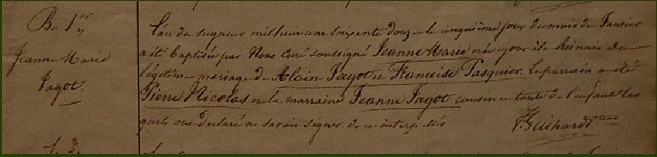 B. 1er
Jeanne Marie
Jagot.
L'an du seigneur mil huit cent soixante douze le cinquième jour du mois de Janvier
a été baptisée par Nous Curé soussigné Jeanne Marie née ce jour du
légitime mariage de Alain Jagot et Francoise Pasquier. Le parrain a été
Pierre Nicolas et la marraine Jeanne Jagot cousin et tante de l'enfant les
quels ont déclaré ne savoir signer de ce interpellés
Guihard